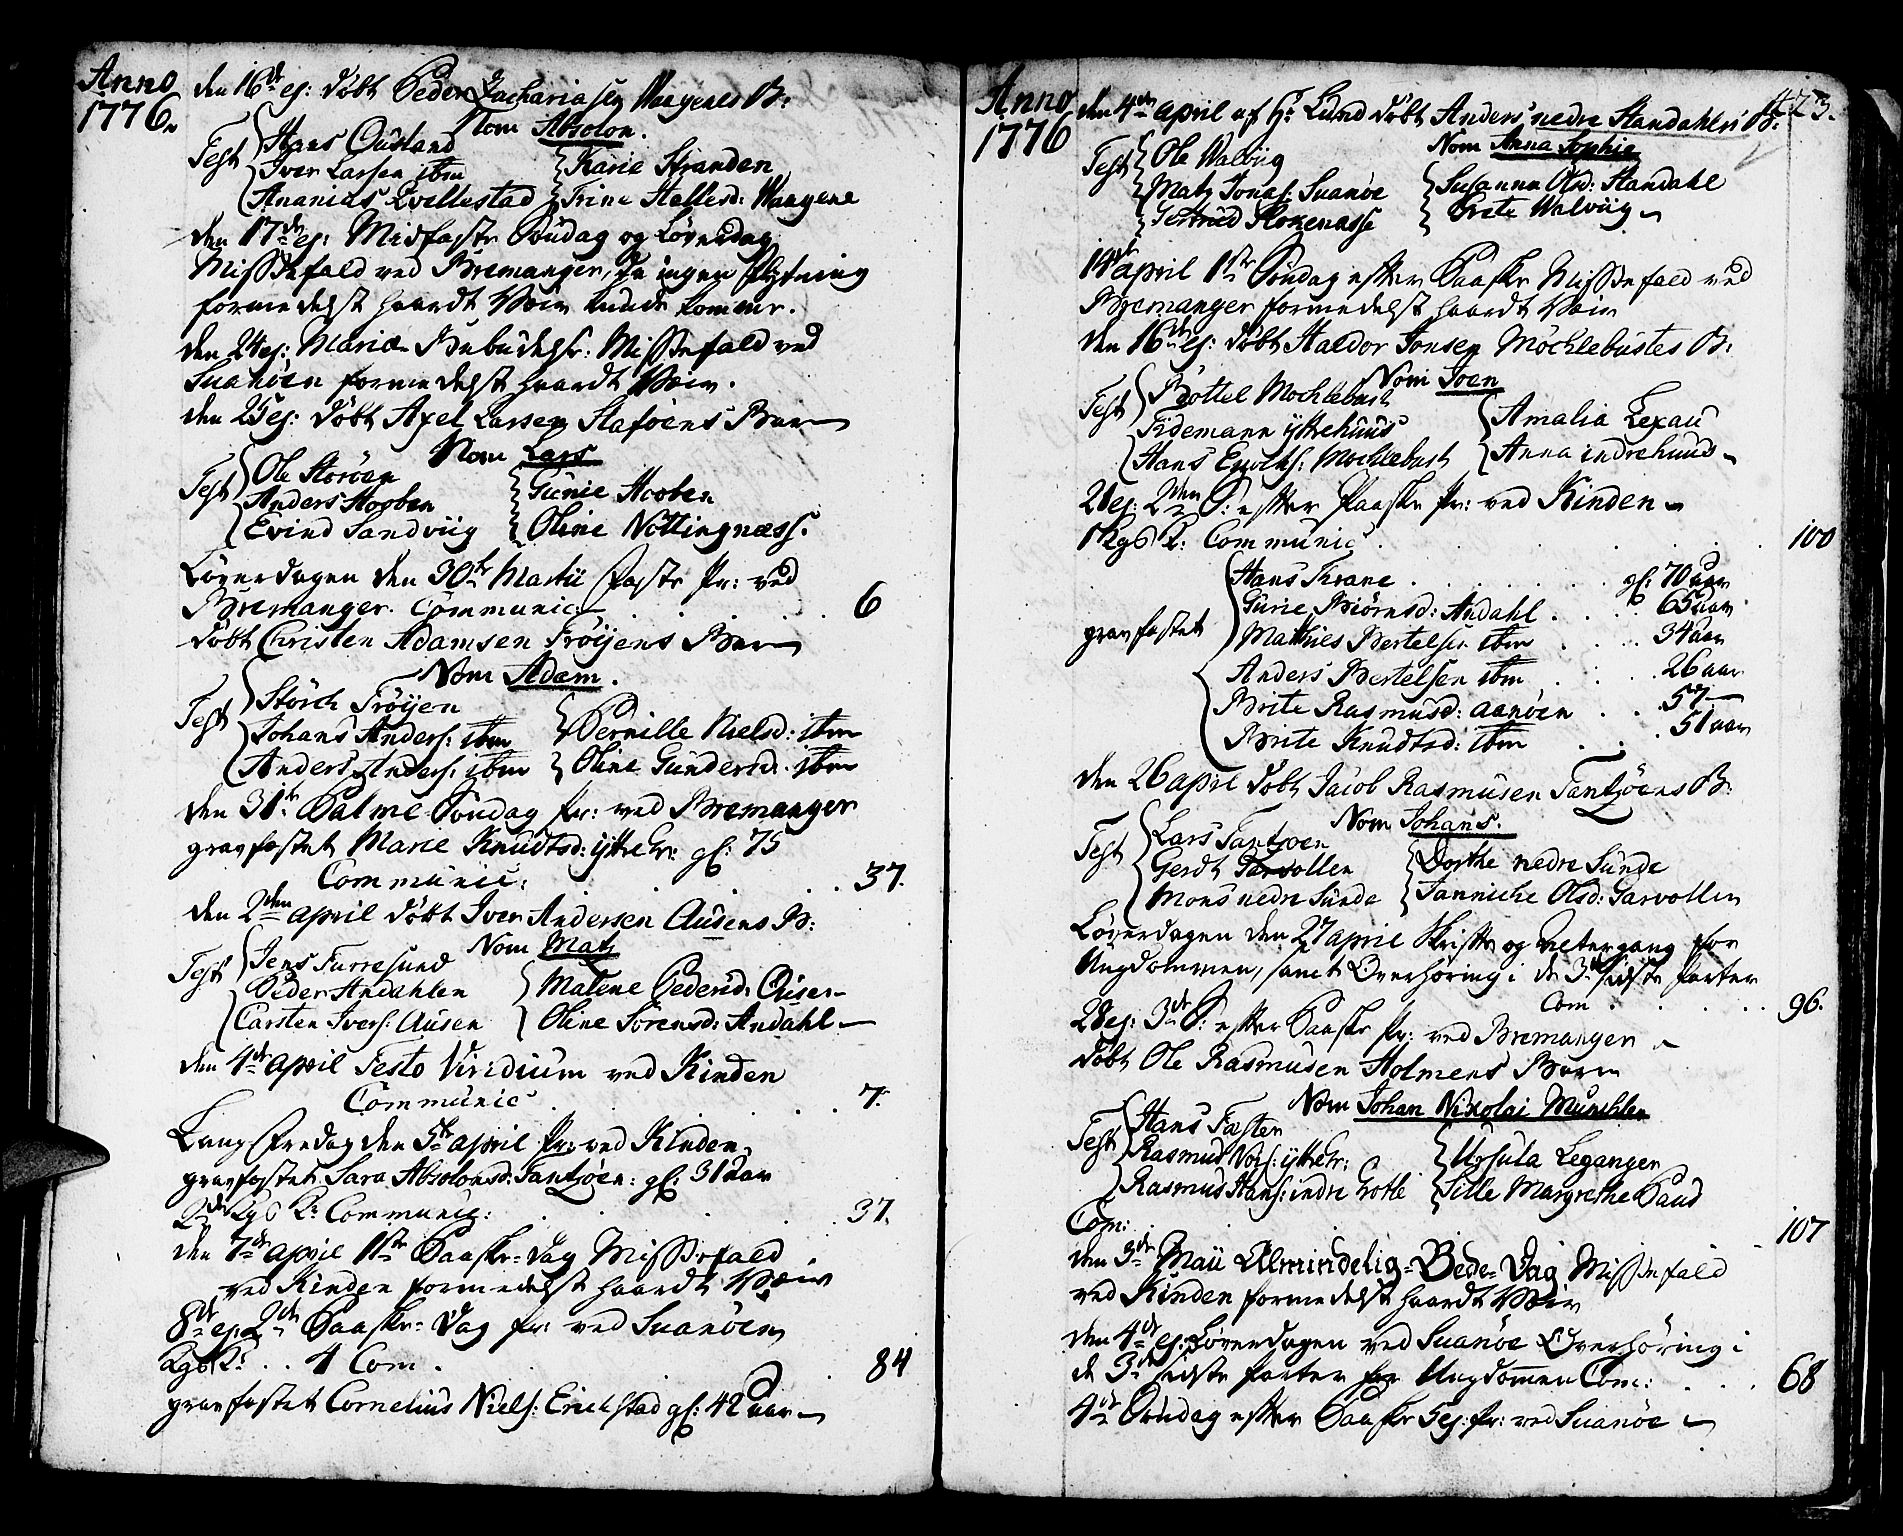 Anno
1776
den 16de ej: døbt Peder Zachariasen Waagenes B:
Nom Absolon.
Test
Hans Oustand
Iver Larsen ibm
Ananias Qvellestad
Karie Stranden
Trine Hallesd: Waagene
den 17de ej: Midfaste Søndag og Løverdag
Missefald ved Bremanger, da ingen flytning
formedelst haardt Veir kunde komme.
den 24 ej: Mariæ Bebudelse: Missefald ved
Suanøen formedelst haardt Veir.
den 25 ej: døbt Axel Larsen Staføens Barn
Nom Lars
Test
Ole Storøen
Anders Hooben
Evind Sandviig
Gunie Hooben
Oline Nottingnæss.
Løverdagen den 30te Martii Faste Pr: ved
Bremanger. Communic . . . . 6
døbt Christen Adamsen Frøijens Barn
Nom Adam.
Test
Störch Frøijen
Johans Anders: ibm
Anders Anders: ibm
Pernille Nielsd: ibm
Oline Gundersd: ibm
den 31te Palme Søndag Pr: ved Bremanger
gravfæstet Marie Knudtsd: ijttre hr: gl: 75
Communic: . . . . 37.
den 2den april døbt Iver Andersen Ausens B:
Nom Matz
Test
Jens Furresund
Peder Andahlen
Carsten Ivers: Ausen
Malene Pedersd: Ausen
Oline Sørensd: Andahl
den 4de april Festo Viridium ved Kinden
Communic . . . . 7.
Lang Fredag den 5te april Pr: ved Kinden,
gravfæstet Sara Absolonsd: Tantzøen: gl: 31 aar
2de Kgs K: Communic: . . . . 37.
den 7de april 1ste Paaske-dag Missefald
ved Kinden formedelst haardt Veir
8de ej: 2de Paaske-Dag Pr: ved Suanøen
Kgs K: . . 4 Com. . . . 84
gravfæstet Cornelius Niels: Erichstad gl: 42 aar
Anno
1776
423.
den 4de april af Hr Lund døbt Anders nedre Standahls B:
Nom Anna Sophie
Test
Ole Walviig
Matz Jonas: Suanøe
Gertrud Klokenæsse
Susanna Olsd: Standahl
Brite Walviig
14de april 1ste Søndag efter Paaske Missefald ved
Bremanger formedelst haardt Veir
den 16de ej: døbt Haldor Jonsen Möchlebustes B:
Nom Joen
Test
Bottel Mochlebust
Tidemann ijttrehuus
Hans Enochs: Mochlebust
Amalia Lexau
Anna indrehuus
21 ej: 2den S: efter Paaske Pr: ved Kinden
1 Kgs K: Communic . . . . 100
gravfæstet
Hans Trane . . . . gl: 70 aar
Gurie Biørnsd: Andahl . . 65 aar
Mathies Bertelsen ibm . . 34 aar
Anders Bertelsen ibm . . 26 aar
Brite Rasmusd: aanøen . . 57
Brite Knudtsd: ibm . . 51 aar
den 26 april døbt Jacob Rasmusen Tantzøens B:
Nom Johans.
Test
Lars Tantzøen
Gerdt Garvollen
Mons nedre Sunde
Dorthe nedre Sunde
Janniche Olsd: Garvollen
Løverdagen den 27 april Skrifte og Altergang for
Ungdommen, samt Overhøring i de 3de sidste parter
Com . . . . 96.
28 ej: 3de S: efter Paaske Pr: ved Bremanger
døbt Ole Rasmusen Holmens Barn
Nom Johan Nikolai Munchler
Test
Hans Faster
Rasmus Vors: ijttre hr:
Rasmus Hans: indre Grotle
Ursula Leganger
Sille Margrethe Paus
Com: . . . . 107
den 3de Maii Almindelig=Bede=Dag Missefald
ved Kinden formedelst haardt Veir
den 4de ej: Løverdagen ved Suanøe Overhøring i
de 3de sidste parter for Ungdommen Com: . . . 68
4de Søndag efter Paaske 5 ej: Pr: ved Suanøe